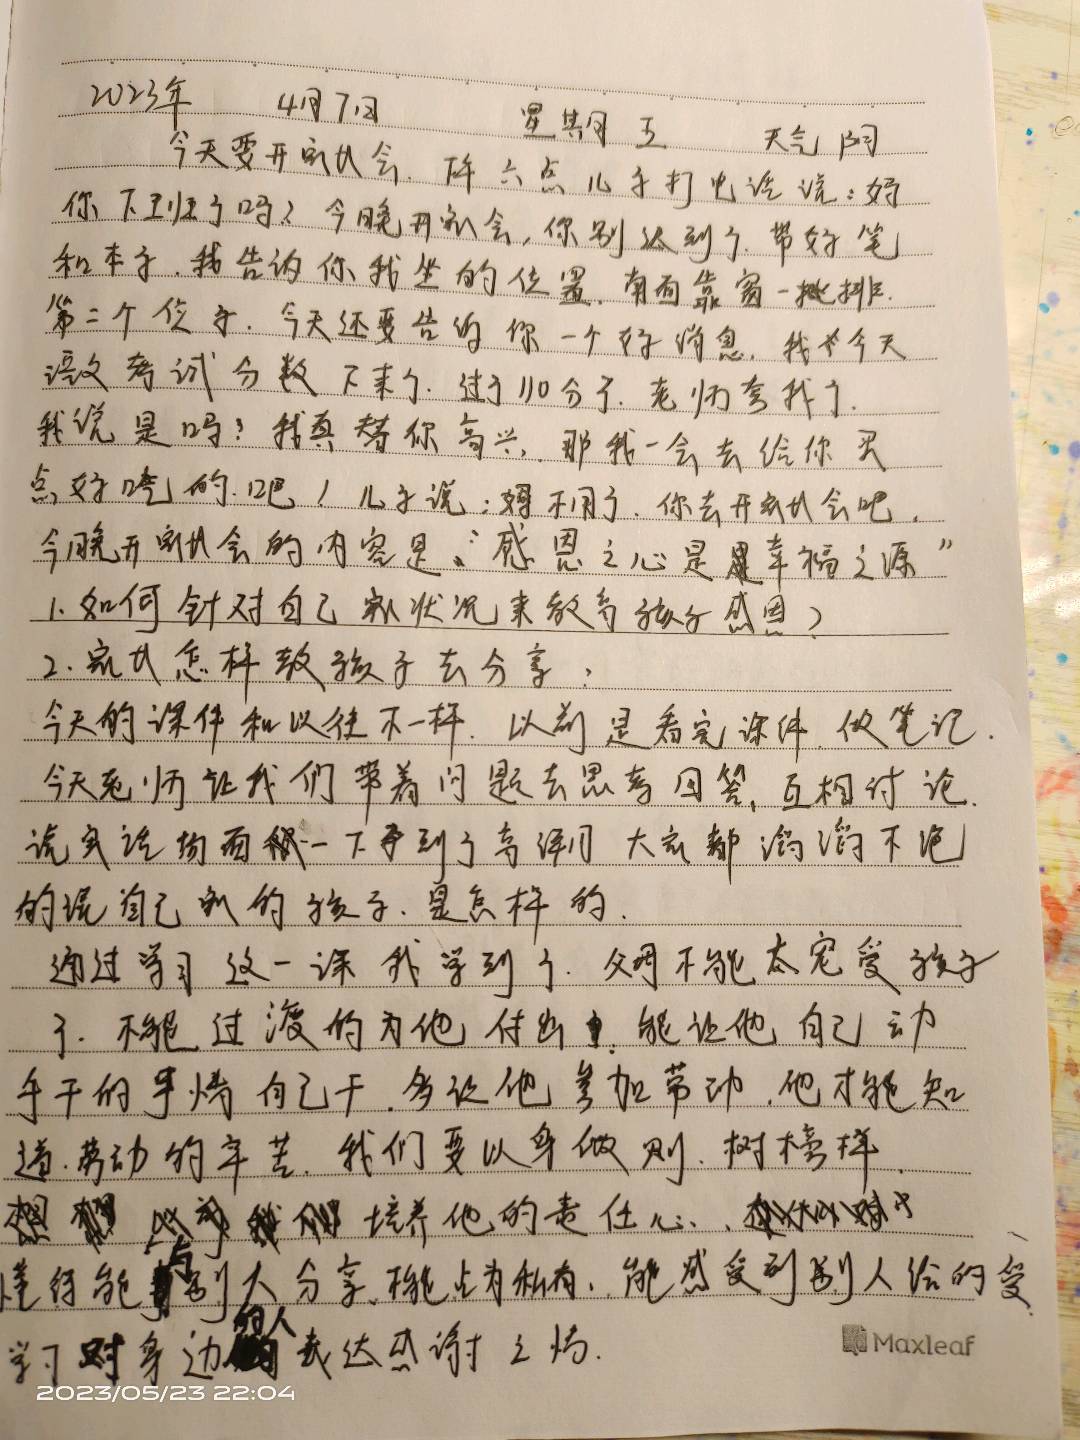 2023年 4月7日 星期五 天气 阴
今天要开家长会. 下午六点儿子打电话说:妈
你下班了吗?今晚开家会,你别迟到了.带好笔
和本子.我告诉你我坐的位置.南面靠窗一排.
第二个位子.今天还要告诉你一个好消息.我今天
语文考试分数下来了.过了110分了.老师夸我了.
我说是吗?我真替你高兴.那我一会去给你买
点好吃的.吧!儿子说:妈不用了.你去开家长会吧.
今晚开家长会的内容是“感恩之心是幸福之源”
1.如何针对自己家状况来教育孩子感恩?
2.家长怎样教孩子去分享;
今天的课件和以往不一样.以前是看完课件.做笔记.
今天老师让我们带着问题去思考回答,互相讨论.
说实话场面一下子到了高潮 大家都滔滔不绝
的说自己家的孩子.是怎样的.
通过学习这一课我学到了.父母不能太宠爱孩子
了.不能过渡的为他付出.能让他自己动
手干的事情自己干.多让他参加劳动.他才能知
道.劳动的辛苦.我们要以身做则.树榜样.
培养他的责任心.
懂得能与别人分享.不能占为私有.能感受到别人给的爱.
学习对身边的人表达感谢之情.
Maxleaf
2023/05/23 22:04